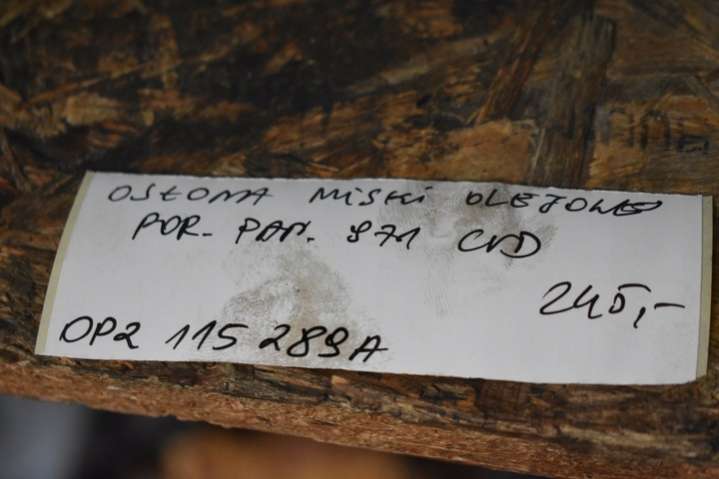 OSŁONA MISKI OLEJOWEJ
POR. PAN. 971 CVD
245,-
OP2 115 289A